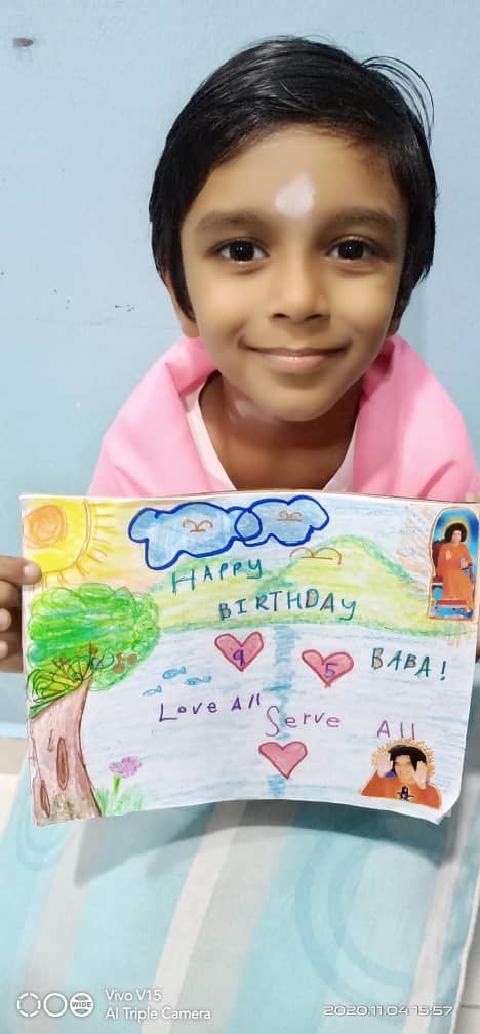 HAPPY
BIRTHDAY
9 5 BABA!
Love All
Serve All
WIDE
Vivo V15
AI Triple Camera
2020.11.04 15:57